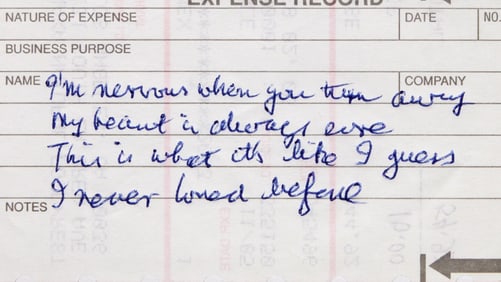 EXPENSE RECORD
NATURE OF EXPENSE DATE NO.
BUSINESS PURPOSE
NAME COMPANY
I'm nervous when you turn away
My heart is always sore
This is what it's like I guess
I never loved before
NOTES